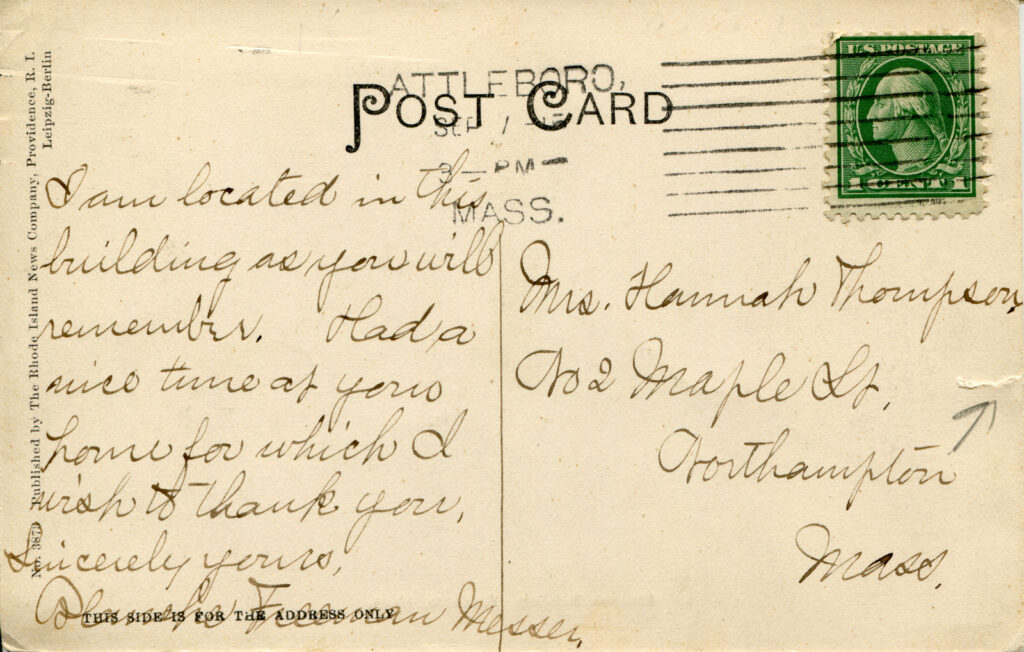 No. 3873 Published by The Rhode Island News Company, Providence, R. I.
Leipzig-Berlin
POST CARD
ATTLEBORO,
SEP
3 - PM
MASS.
U.S. POSTAGE
1 CENT 1
I am located in this
building as you will
remember. Had a
nice time at your
home for which I
wish to thank you,
Sincerely yours,
Blanche Freeman Messer.
THIS SIDE IS FOR THE ADDRESS ONLY
Mrs. Hannah Thompson,
No 2 Maple St,
Northampton
Mass.